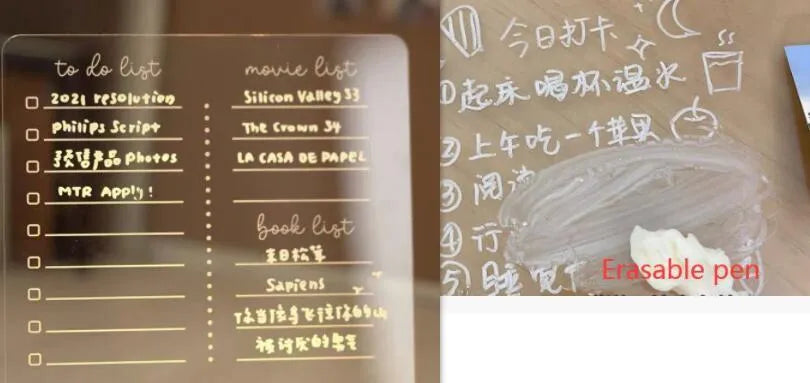 to do list
2021 resolution
Philips Script
预售产品 photos
MTR Apply!
movie list
Silicon Valley S3
The Crown S4
LA CASA DE PAPEL
book list
Sapiens
被讨厌的勇气
今日打卡
①起来喝杯温水
②上午吃一个苹果
③阅读
④行
⑤睡觉
Erasable pen